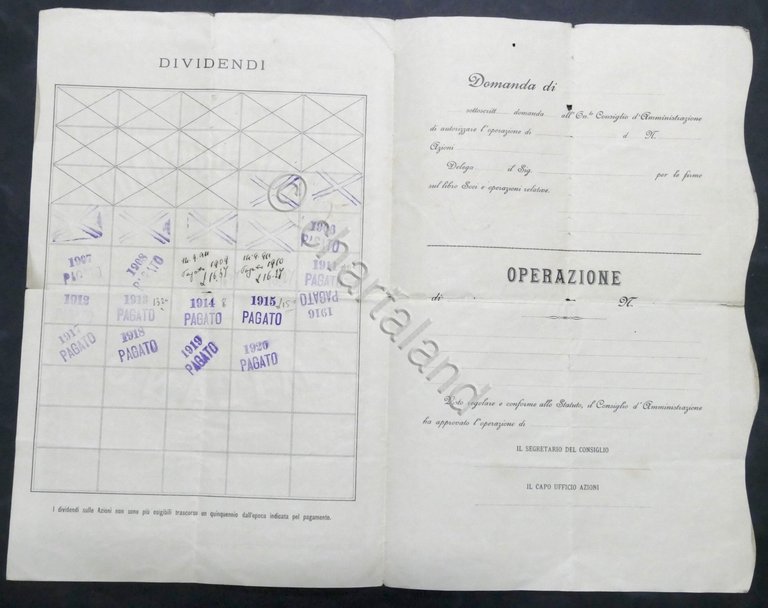 DIVIDENDI
1906
1907
PAGATO
1908
PAGATO
1909
£ 16.57
1910
£ 16.27
1911
PAGATO
1912
PAGATO
1913
PAGATO
1914
PAGATO
8
1915
PAGATO
1916
PAGATO
1917
PAGATO
1918
PAGATO
1919
PAGATO
1920
PAGATO
I dividendi sulle Azioni non sono più esigibili trascorso un quinquennio dall'epoca indicata pel pagamento.
Domanda di
sottoscritt domanda all'On.le Consiglio d'Amministrazione
di autorizzare l'operazione di d N.
Azioni
Delega il Sig. per le firme
sul libro Soci e operazioni relative.
OPERAZIONE
di N.
Visto regolare e conforme allo Statuto, il Consiglio d'Amministrazione
ha approvato l'operazione di
IL SEGRETARIO DEL CONSIGLIO
IL CAPO UFFICIO AZIONI
© chartaland